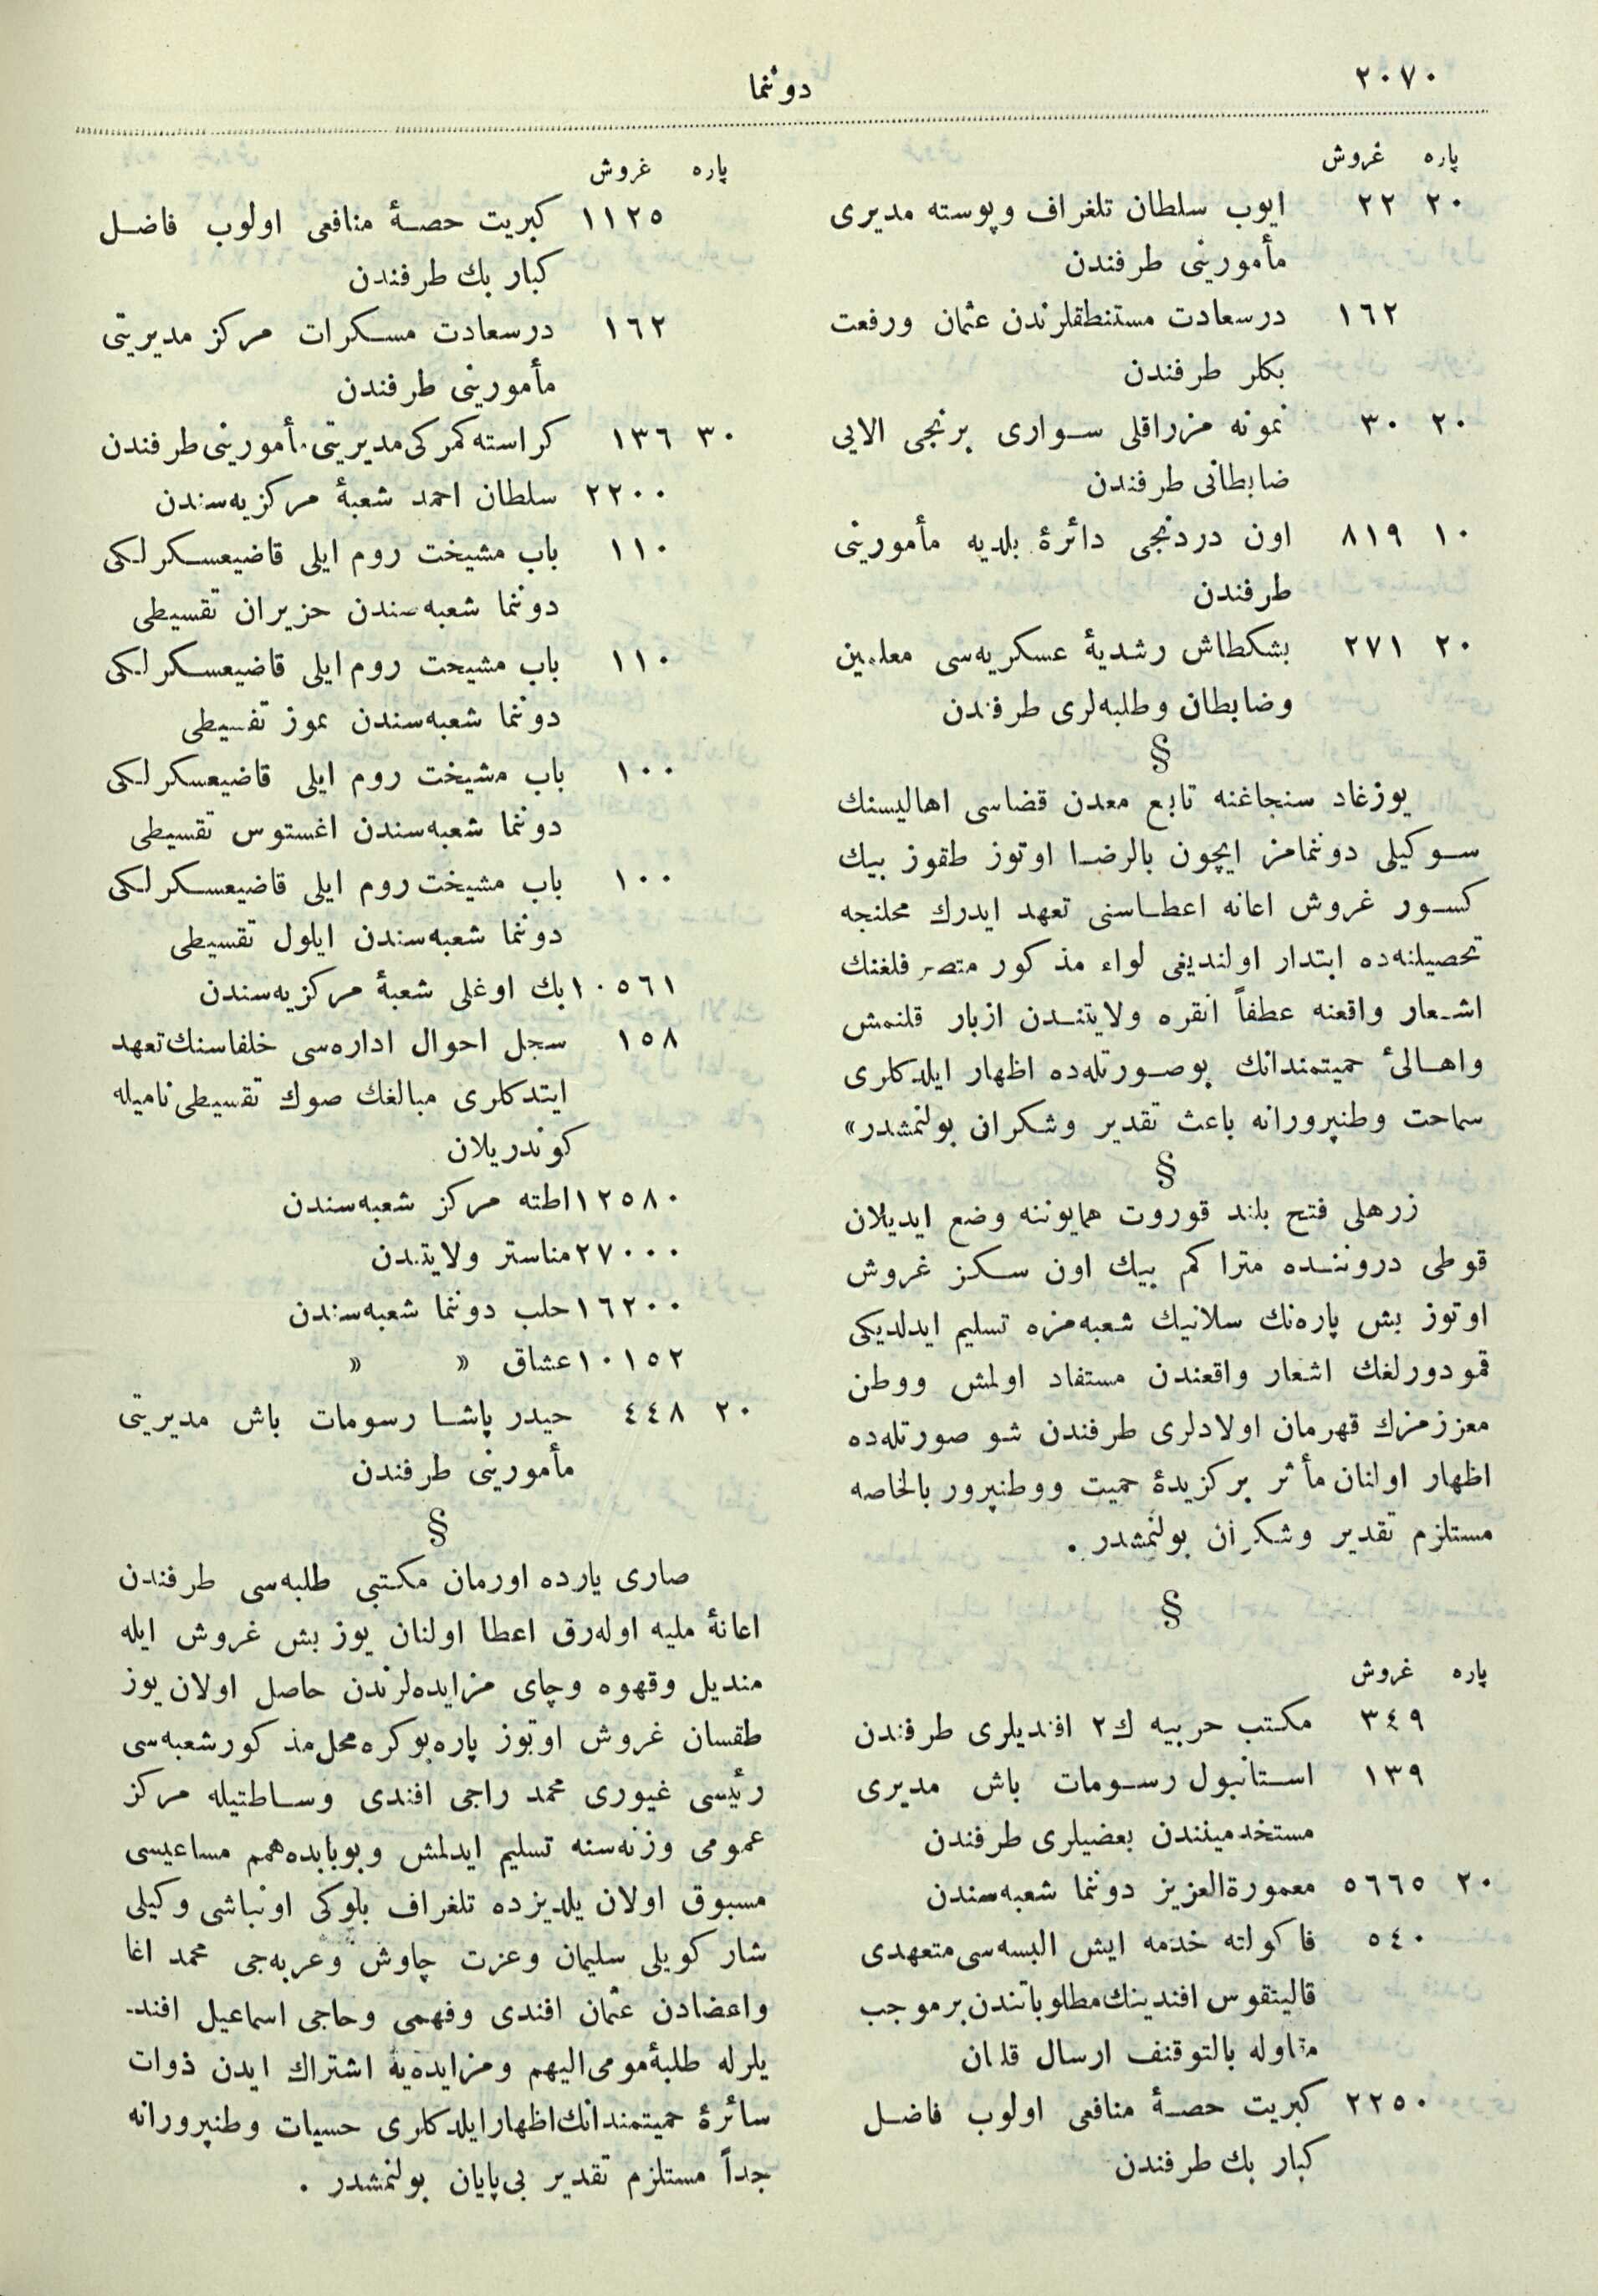 ٢٠٧٠
دوننما
پاره غروش
٢٠ ٢٢ ايوب سلطان تلغراف وپوسته مديری
مأمورينی طرفندن
١٦٢ درسعادت مستنطقلرندن عثمان ورفعت
بكلر طرفندن
٢٠ ٣٠ نمونه مزراقلی سواری برنجی الايی
ضابطانی طرفندن
١٠ ٨١٩ اون دردنجی دائرهٔ بلديه مأمورينی
طرفندن
٢٠ ٢٧١ بشكطاش رشديهٔ عسكريه‌سی معلمين
وضابطان وطلبه‌لری طرفندن
§
يوزغاد سنجاغنه تابع معدن قضاسی اهاليسنك
سوكيلی دوننمامز ايچون بالرضا اوتوز طقوز بيك
كسور غروش اعانه اعطاسنی تعهد ايدرك محلنجه
تحصيلنه‌ده ابتدار اولنديغی لواء مذكور متصرفلغنك
اشعار واقعنه عطفاً انقره ولايتندن ازبار قلنمش
واهالئ حميتمندانك بوصورتله‌ده اظهار ايلدكلری
سماحت وطنپرورانه باعث تقدير وشكران بولنمشدر»
§
زرهلی فتح بلند قوروت همايوننه وضع ايديلان
قوطی دروننده متراكم بيك اون سكز غروش
اوتوز بش پاره‌نك سلانيك شعبه‌مزه تسليم ايدلديكی
قمودورلغك اشعار واقعندن مستفاد اولمش ووطن
معززمزك قهرمان اولادلری طرفندن شو صورتله‌ده
اظهار اولنان مأثر برگزيدهٔ حميت ووطنپرور بالخاصه
مستلزم تقدير وشكران بولنمشدر .
§
پاره غروش
٣٤٩ مكتب حربيه ك٢ افنديلری طرفندن
١٣٩ استانبول رسومات باش مديری
مستخدميننندن بعضيلری طرفندن
٢٠ ٥٦٦٥ معمورةالعزيز دوننما شعبه‌سندن
٥٤٠ فاكولته خدمه ايش البسه‌سی متعهدی
قالينقوس افندينك مطلوباتندن برموجب
مقاوله بالتوقنف ارسال قلنان
٢٢٥٠ كبريت حصهٔ منافعی اولوب فاضل
كبار بك طرفندن
پاره غروش
١١٢٥ كبريت حصهٔ منافعی اولوب فاضل
كبار بك طرفندن
١٦٢ درسعادت مسكرات مركز مديريتی
مأمورينی طرفندن
٣٠ ١٣٦ كراسته كمركی مديريتی مأمورينی طرفندن
٢٢٠٠ سلطان احمد شعبهٔ مركزيه‌سندن
١١٠ باب مشيخت روم ايلی قاضيعسكرلكی
دوننما شعبه‌سندن حزيران تقسيطی
١١٠ باب مشيحت روم ايلی قاضيعسكرلكی
دوننما شعبه‌سندن تموز تقسيطی
١٠٠ باب مشيخت روم ايلی قاضيعسكرلكی
دوننما شعبه‌سندن اغستوس تقسيطی
١٠٠ باب مشيخت روم ايلی قاضيعسكرلكی
دوننما شعبه‌سندن ايلول تقسيطی
١٠٥٦١ بك اوغلی شعبهٔ مركزيه‌سندن
١٥٨ سجل احوال اداره‌سی خلفاسنك تعهد
ايتدكلری مبالغك صوك تقسيطی ناميله
كوندريلان
١٢٥٨٠ اطنه مركز شعبه‌سندن
٢٧٠٠٠ مناستر ولايتندن
١٦٢٠٠ حلب دوننما شعبه‌سندن
١٠١٥٢ عشاق » »
٢٠ ٤٤٨ حيدر پاشا رسومات باش مديريتی
مأمورينی طرفندن
§
صاری يارده اورمان مكتبی طلبه‌سی طرفندن
اعانهٔ مليه اوله‌رق اعطا اولنان يوز بش غروش ايله
منديل وقهوه وچای مزايده‌لرندن حاصل اولان يوز
طقسان غروش اوتوز پاره بوكره محل مذكور شعبه‌سی
رئيسی غيوری محمد راجی افندی وساطتيله مركز
عمومی وزنه‌سنه تسليم ايدلمش وبوبابده همم مساعيسی
مسبوق اولان يلديزده تلغراف بلوكی اونباشی وكيلی
شاركويلی سليمان وعزت چاوش وعربه‌جی محمد اغا
واعضادن عثمان افندی وفهمی وحاجی اسماعيل افند-
يلرله طلبهٔ مومی‌اليهم ومزايده‌يه اشتراك ايدن ذوات
سائرهٔ حميتمندانك اظهار ايلدكلری حسيات وطنپرورانه
جداً مستلزم تقدير بی‌پايان بولنمشدر .